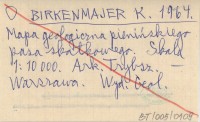 O BIRKENMAJER K. 1964.
Mapa geologiczna pienińskiego
pasa skałkowego. Skala
1:10 000. Ark. Trybsz. —
Warszawa. Wyd. Geol.
BT/005/0909